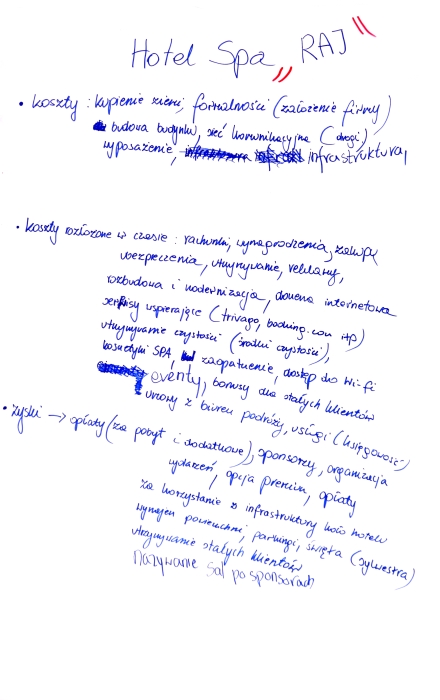 Hotel Spa „RAJ"
• koszty : kupienie ziemi, formalności (założenie firmy)
budowa budynku, sieć komunikacyjna (drogi),
wyposażenie, infrastruktura,
• koszty rozłożone w czasie : rachunki, wynagrodzenia, zakupy
ubezpieczenia, utrzymywanie, reklamy,
rozbudowa i modernizacja, domena internetowa
serwisy wspierające (trivago, booking.com itp)
utrzymywanie czystości (środki czystości),
kosmetyki SPA, zaopatrzenie, dostęp do Wi-fi
eventy, bonusy dla stałych klientów
umowy z biurem podróży, usługi (księgowość)
• zyski → opłaty (za pobyt i dodatkowe), sponsorzy, organizacja
wydarzeń, opcja premium, opłaty
za korzystanie z infrastruktury koło hotelu
wynajem powierzchni, parkingi, święta (sylwestra)
utrzymywanie stałych klientów
nazywanie sal po sponsorach